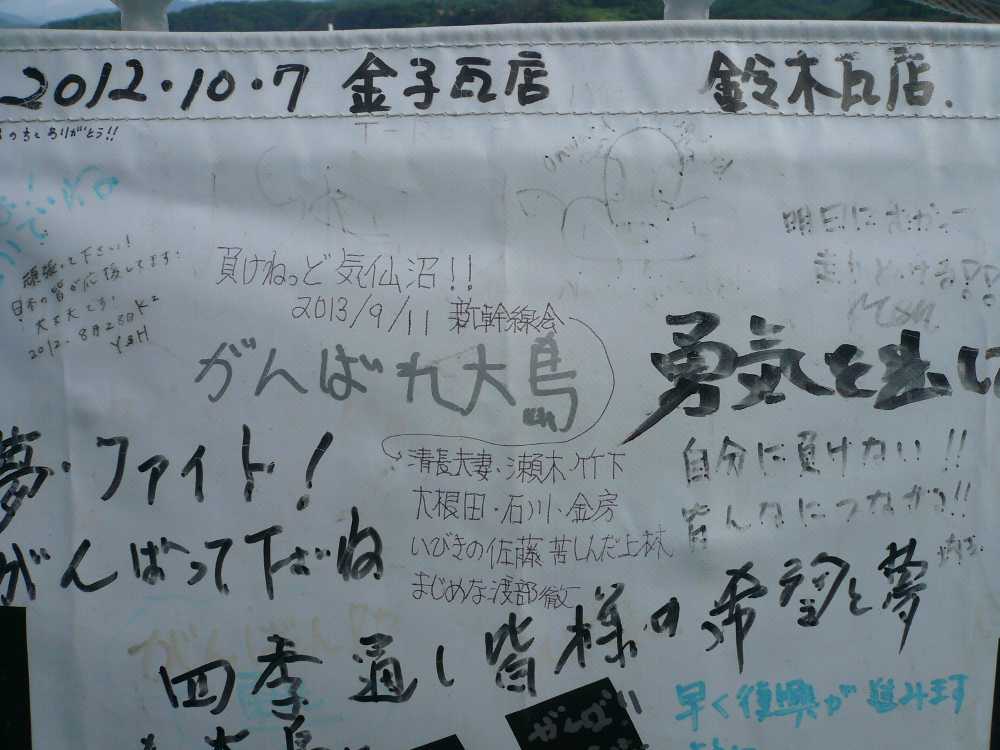 2012・10・7 金子瓦店 鈴木瓦店.
のちとありがとう!!
頑張って下さい!
日本の皆が応援してます!
大丈夫です!
2012. 8月28日 K2
Y&H
負けねっど気仙沼!!
2013/9/11 新幹線会
がんばれ大島
清長夫妻・瀬木・竹下
大根田・石川・金房
いびきの佐藤 苦しんだ上林
まじめな渡部徹
明日にむかって
勇気を出し
自分に負けない!!
皆んなにつながる!!
夢・ファイト!
がんばって下さいね
四季通し皆様の希望と夢
早く復興が進みます
がんばい